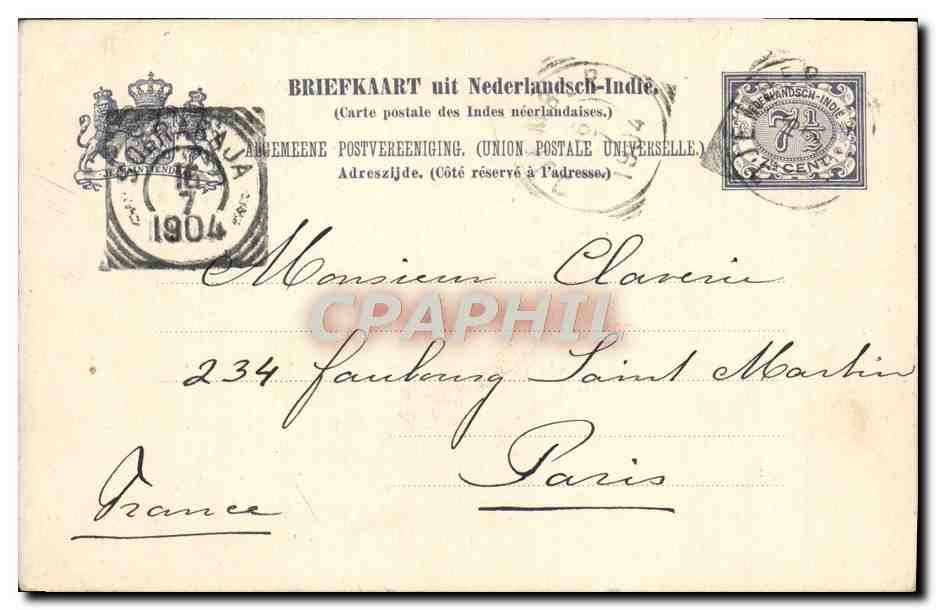 BRIEFKAART uit Nederlandsch-Indië.
(Carte postale des Indes néerlandaises.)
ALGEMEENE POSTVEREENIGING. (UNION POSTALE UNIVERSELLE.)
Adreszijde. (Côté réservé à l'adresse.)
NEDERLANDSCH-INDIE
7 1/2
7½ CENT
JE MAINTIENDRAI
SOERABAJA
16
7
1904
Monsieur Claverie
CPAPHIL
234 faubourg Saint Martin
Paris
France